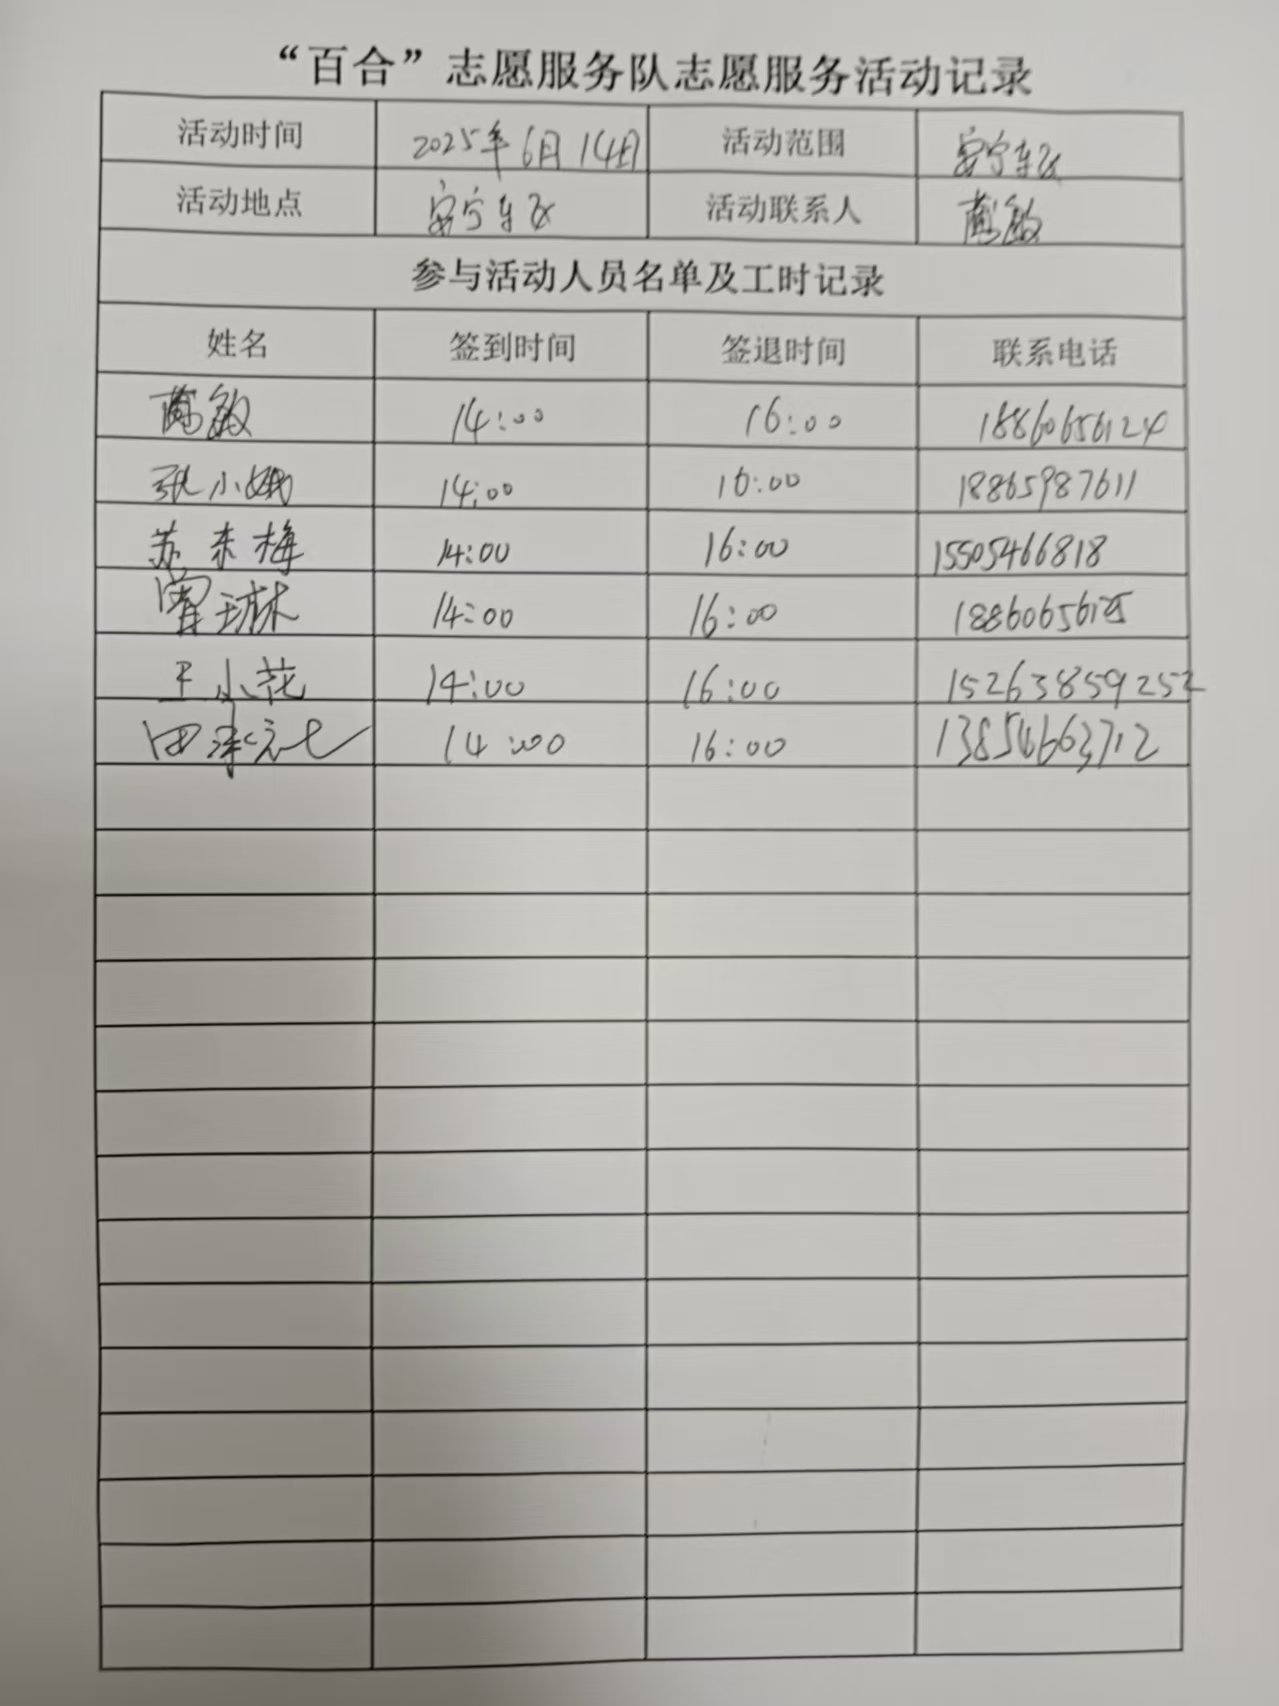 “百合”志愿服务队志愿服务活动记录
活动时间 2025年6月14日 活动范围 安宁东区
活动地点 安宁东区 活动联系人 敏
参与活动人员名单及工时记录
姓名 签到时间 签退时间 联系电话
敏 14:00 16:00 18860656124
张小娥 14:00 16:00 18865987611
苏来梅 14:00 16:00 15505466818
14:00 16:00 18860656125
王小花 14:00 16:00 152638859252
田 14:00 16:00 13854663712